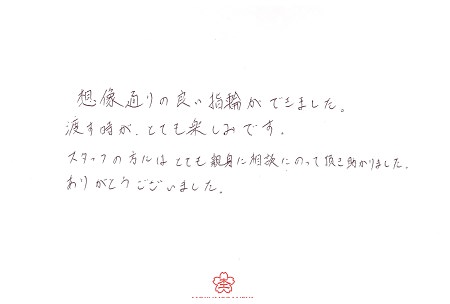 想像通りの良い指輪ができました。
渡す時が、とても楽しみです。
スタッフの方にはとても親身に相談にのって頂き助かりました。
ありがとうございました。